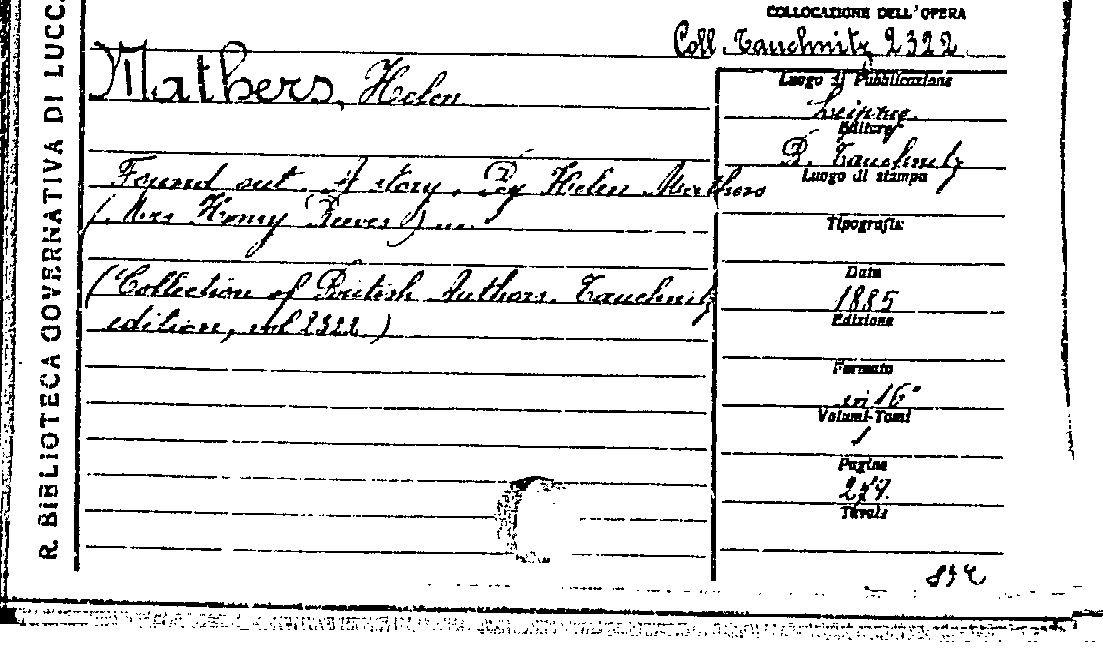 R. BIBLIOTECA GOVERNATIVA DI LUCCA
COLLOCAZIONE DELL'OPERA
Coll. Tauchnitz 2322
Mathers, Helen
Found out. A story. By Helen Mathers
(Mrs Henry Reeves) ...
(Collection of British Authors. Tauchnitz
edition, vol 2322.)
Luogo di Pubblicazione
Leipzig
Editore
B. Tauchnitz
Luogo di stampa
Tipografia
Data
1885
Edizione
Formato
in 16°
Volumi-Tomi
1
Pagine
Tavole